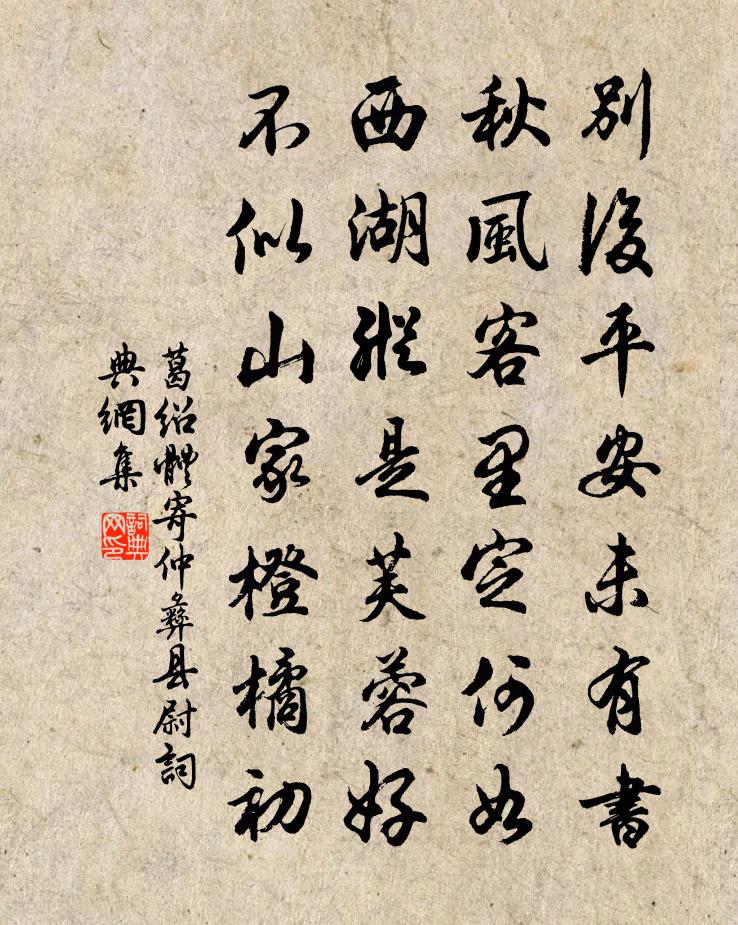 別後平安未有書
秋風客里定何如
西湖縱是芙蓉好
不似山家橙橘初
葛紹體寄仲彝县尉詞
典網集
詞典
网印